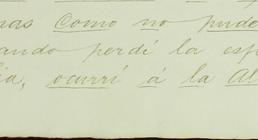 como no pude
ando perdí la esp
ocurrí á la Al